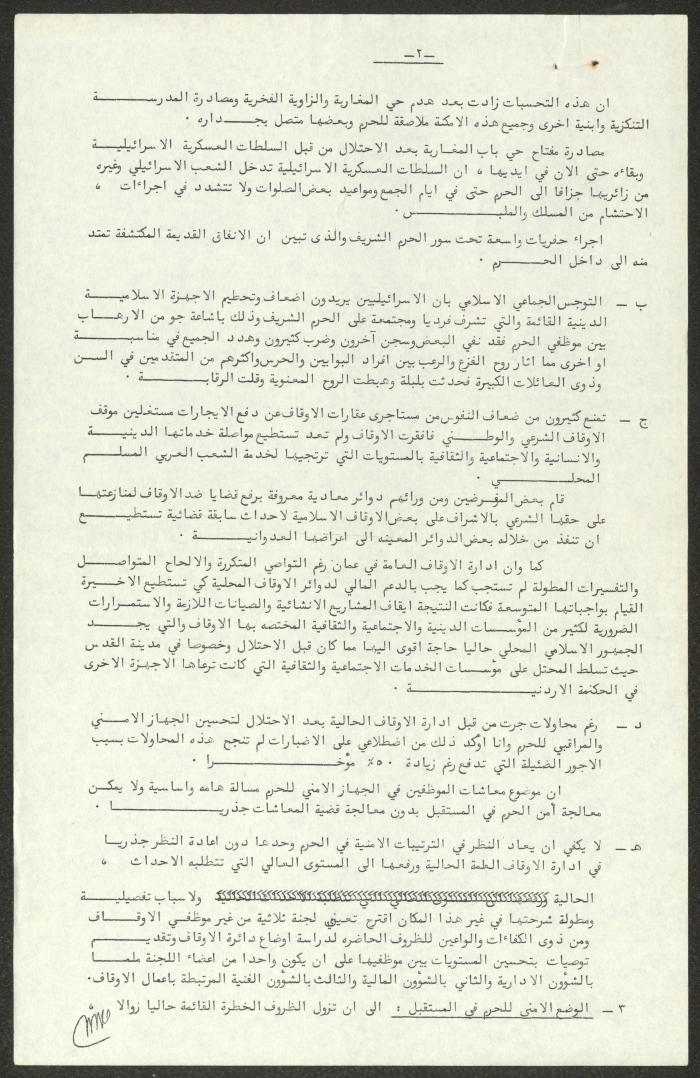 ـ٢ـ
ان هذه التحسبات زادت بعد هدم حي المغاربة والزاوية الفخرية ومصادرة المدرســـة
التنكزية وابنية اخرى وجميع هذه الامكنة ملاصقة للحرم وبعضها متصل بجــداره .
مصادرة مفتاح حي باب المغاربة بعد الاحتلال من قبل السلطات العسكرية الاسرائيليـة
وبقاءه حتى الان في ايديها ، ان السلطات العسكرية الاسرائيلية تدخل الشعب الاسرائيلي وغيره
من زائريها جزافا الى الحرم حتى في ايام الجمع ومواعيد بعض الصلوات ولا تتشدد في اجراءات ،
الاحتشام من المسلك والملبــــس .
اجراء حفريات واسعة تحت سور الحرم الشريف والذى تبين ان الانفاق القديمة المكتشفة تمتد
منه الى داخل الحـــرم .
ب ـ التوجس الجماعي الاسلامي بان الاسرائيليين يريدون اضعاف وتحطيم الاجهزة الاسلاميـة
الدينية القائمة والتي تشرف فرديا ومجتمعة على الحرم الشريف وذلك باشاعة جو من الارهـاب
بين موظفي الحرم فقد نفي البعض وسجن آخرون وضرب كثيرون وهدد الجميع في مناسبـــة
او اخرى مما اثار روح الفزع والرعب بين افراد البوابين والحرس واكثرهم من المتقدمين في السن
وذوى العائلات الكبيرة فحدثت بلبلة وهبطت الروح المعنوية وقلت الرقابــــة .
ج ـ تمنع كثيرون من ضعاف النفوس من مستاجرى عقارات الاوقاف عن دفع الايجارات مستغلين موقف
الاوقاف الشرعي والوطــني فافقرت الاوقاف ولم تعد تستطيع مواصلة خدماتها الدينيــة
والانسانية والاجتماعية والثقافية بالمستويات التي ترتجيها لخدمة الشعب العربي المسلــم
المحلـــــي .
قام بعض المغرضين ومن ورائهم دوائر معادية معروفة برفع قضايا ضد الاوقاف لمنازعتها
على حقها الشرعي بالاشراف على بعض الاوقاف الاسلامية لاحداث سابقة قضائية تستطيــع
ان تنفذ من خلاله بعض الدوائر المعينه الى اغراضها العدوانيـــة .
كما وان ادارة الاوقاف العامة في عمان رغم التواصي المتكررة والالحاح المتواصـل
والتفسيرات المطولة لم تستجب كما يجب بالدعم المالي لدوائر الاوقاف المحلية كي تستطيع الاخـيرة
القيام بواجباتها المتوسعة فكانت النتيجة ايقاف المشاريع الانشائية والصيانات اللازمة والاستمـرارات
الضرورية لكثير من المؤسسات الدينية والاجتماعية والثقافية المختصه بها الاوقاف والتي يجــد
الجمهور الاسلامي المحلي حاليا حاجة اقوى اليها مما كان قبل الاحتلال وخصوصا في مدينة القدس
حيث تسلط المحتل على مؤسسات الخدمات الاجتماعية والثقافية التي كانت ترعاها الاجهزة الاخرى
في الحكمة الاردنيـــــة .
د ـ رغم محاولات جرت من قبل ادارة الاوقاف الحالية بعد الاحتلال لتحسين الجهاز الامــني
والمراقبي للحرم وانا اوكد ذلك من اضطلاعي على الاضبارات لم تنجح هذه المحاولات بسبب
الاجور الضئيلة التي تدفع رغم زيادة ٥٠٪ مؤخــــرا .
ان موضوع معاشات الموظفين في الجهاز الامني للحرم مسالة هامه واساسية ولا يمكـن
معالجة أمن الحرم في المستقبل بدون معالجة قضية المعاشات جذريـــــا .
هـ ـ لا يكفي ان يعاد النظر في الترتيبات الامنية في الحرم وحدها دون اعادة النظر جذريـا
في ادارة الاوقاف العامة الحالية ورفعها الى المستوى العالي التي تتطلبه الاحداث ،
الحالية ولاسباب تفصيليــة
ومطولة شرحتها في غير هذا المكان اقترح تعيين لجنة ثلاثية من غير موظفي الاوقــاف
ومن ذوى الكفاءات والواعين للظروف الحاضره لدراسة اوضاع دائرة الاوقاف وتقديــم
توصيات بتحسين المستويات بين موظفيها على ان يكون واحدا من اعضاء اللجنة ملمــا
بالشؤون الادارية والثاني بالشؤون المالية والثالث بالشؤون الفنية المرتبطة باعمال الاوقاف.
٣ ـ الوضع الامني للحرم في المستقبل : الى ان تزول الظروف الخطرة القائمة حاليا زوالا